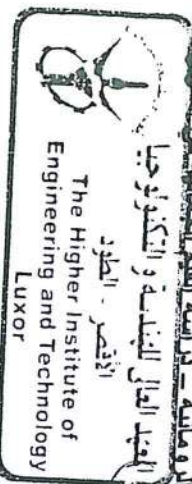 المعهد العالى للهندسة و التكنولوجيا
الأقصر - الطود
The Higher Institute of
Engineering and Technology
Luxor